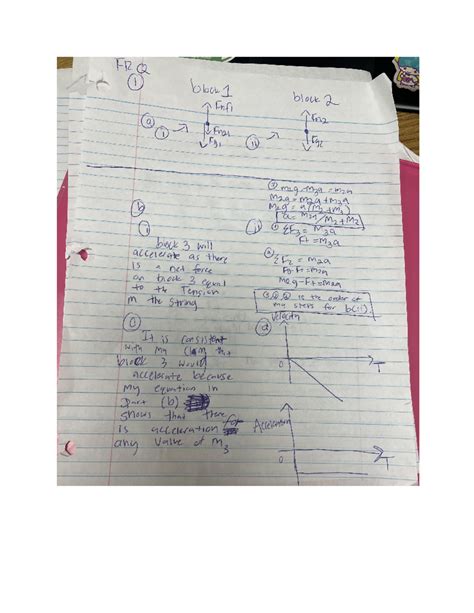 FRQ
①
block 1
block 2
Fnf1
Fn2
ⓐ
ⓘ
ⓘⓘ
Fg1
Fg2
③ m2g - m3a = m2a
m2g = m2a + m3a
ⓑ
ⓘ
block 3 will
accelerate as there
is a net force
on block 3 equal
to the Tension
in the string
① ΣF3 = m3a
Ft = m3a
② ΣF2 = m2a
Fg - Ft = m2a
m2g - Ft = m2a
is the order of
my steps for b(ii).
ⓒ
It is consistent
with my claim that
block 3 would
accelerate because
my equation in
part (b)
shows that there
is acceleration for
any value of m3
ⓓ
Velocity
0
T
Acceleration
0
T